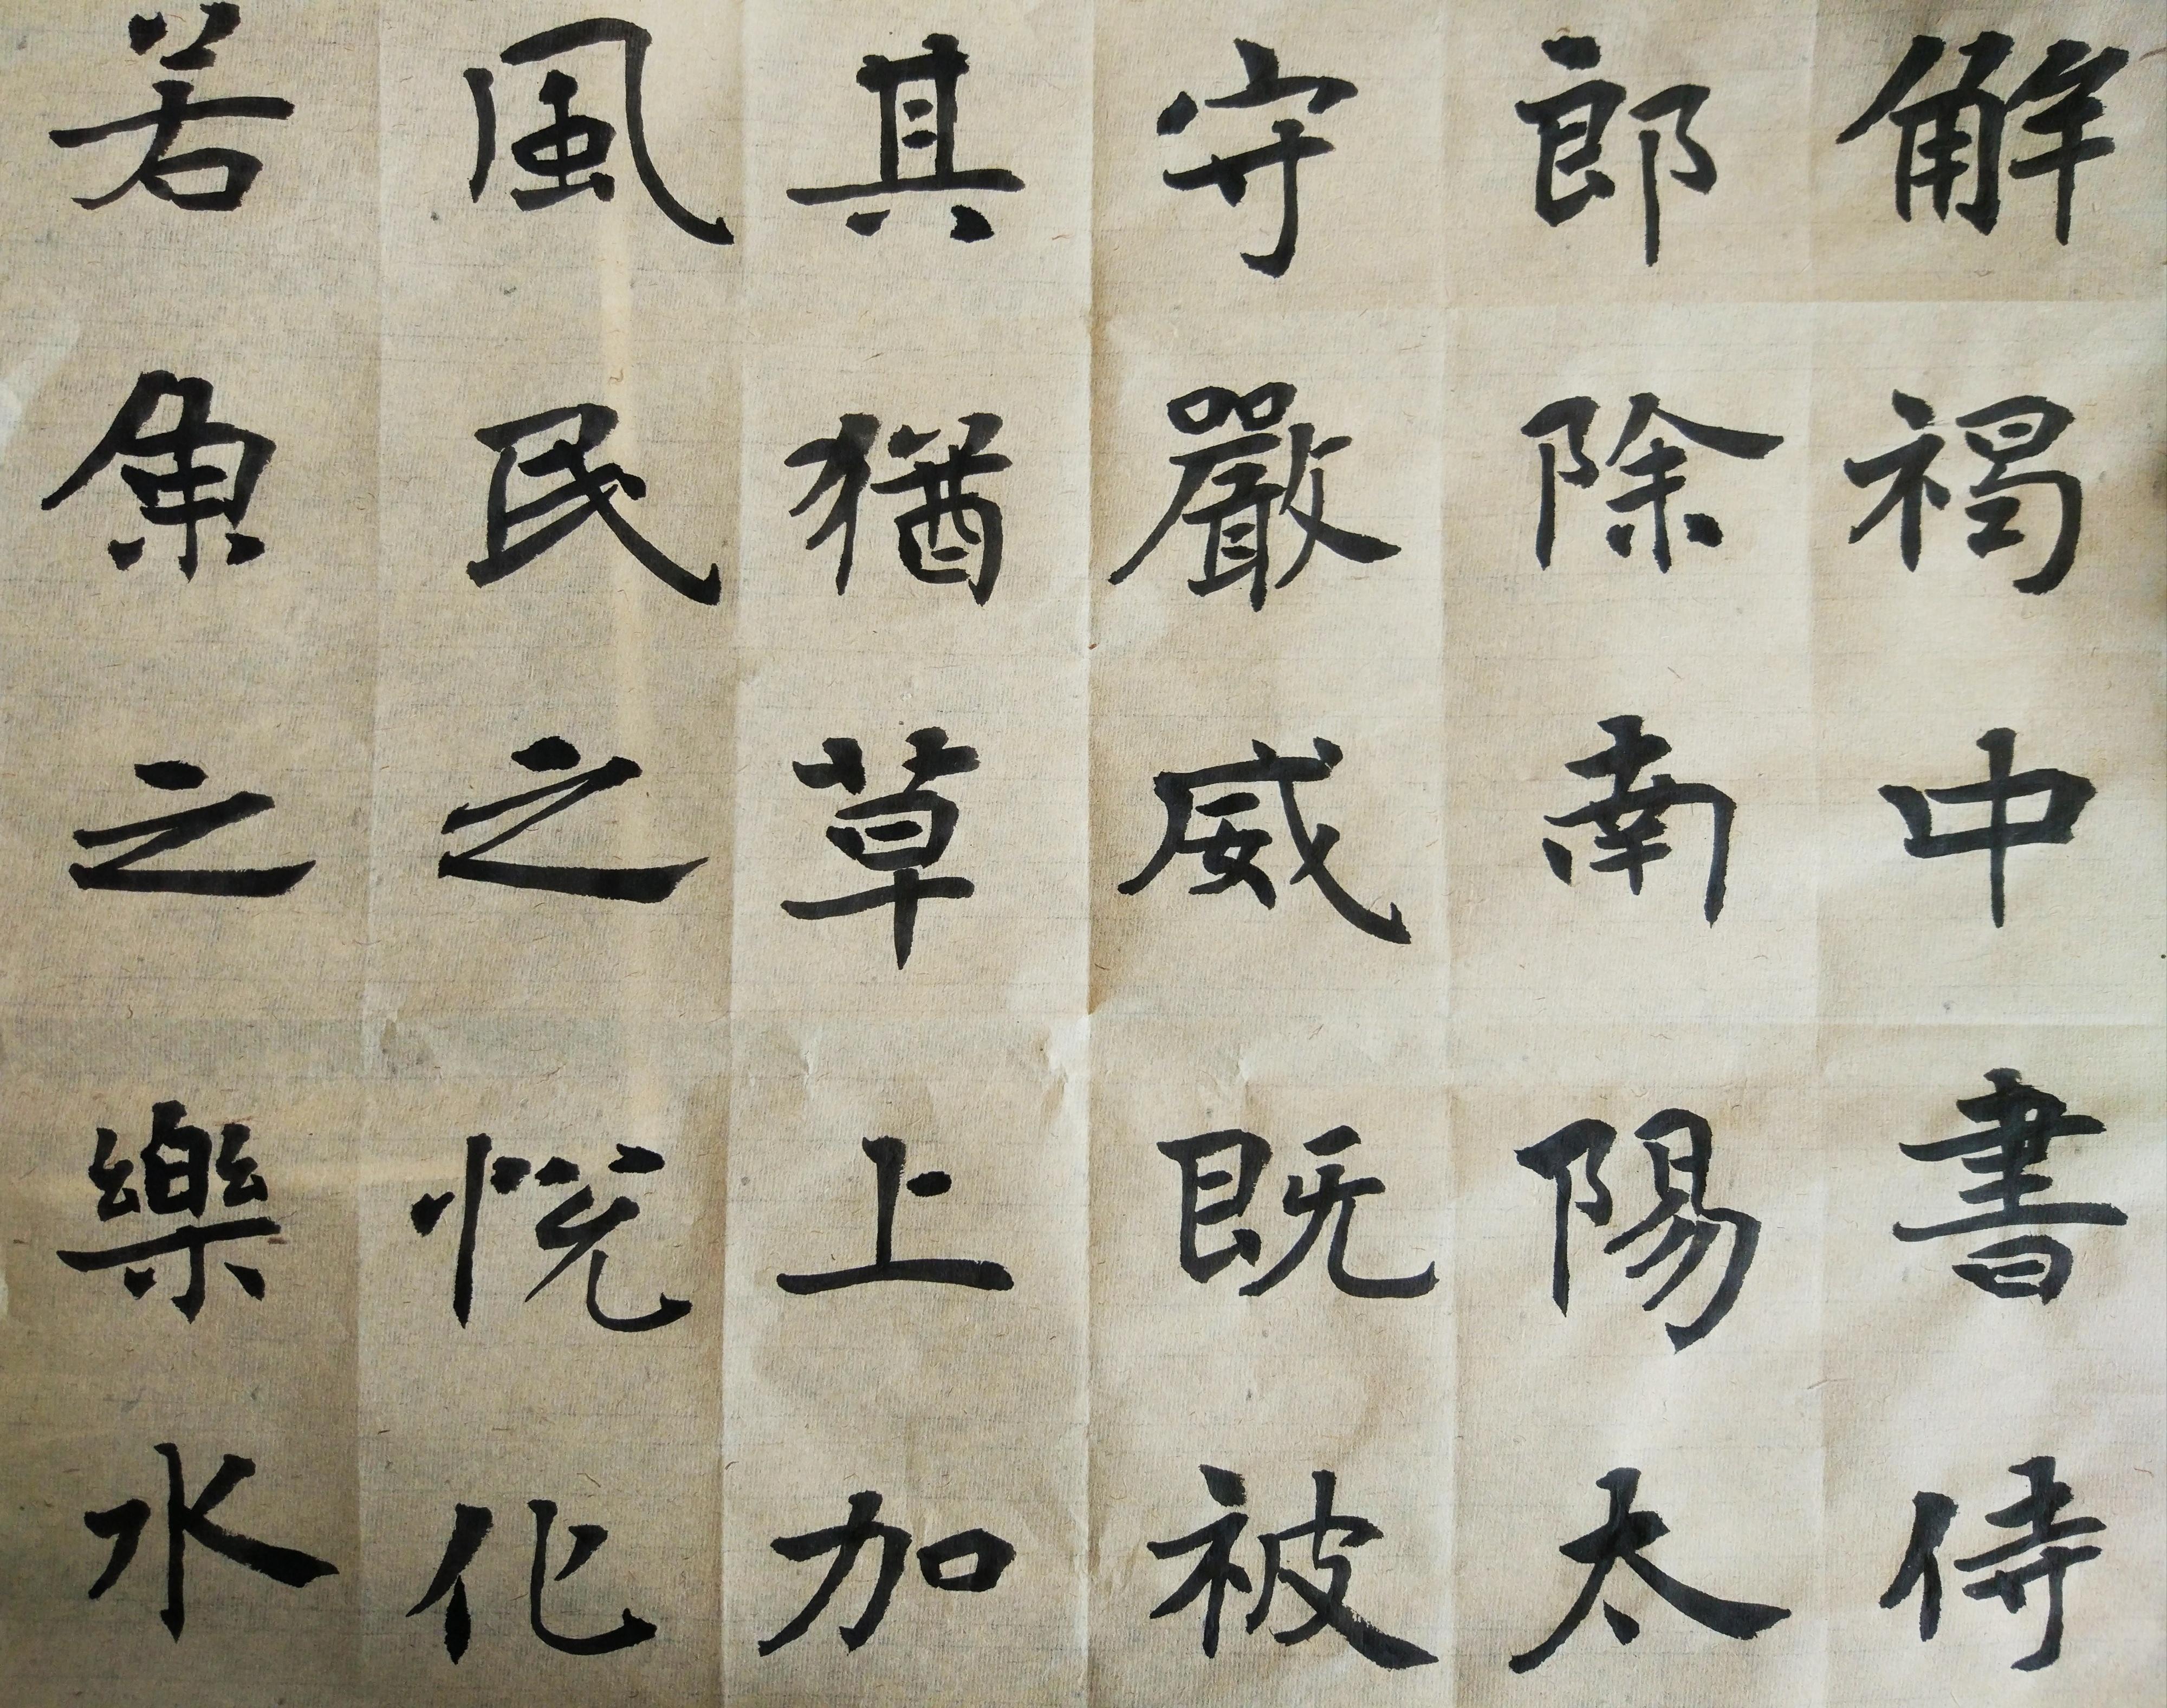 解褐中書侍
郎除南陽太
守嚴威既被
其猶草上加
風民之悅化
若魚之樂水